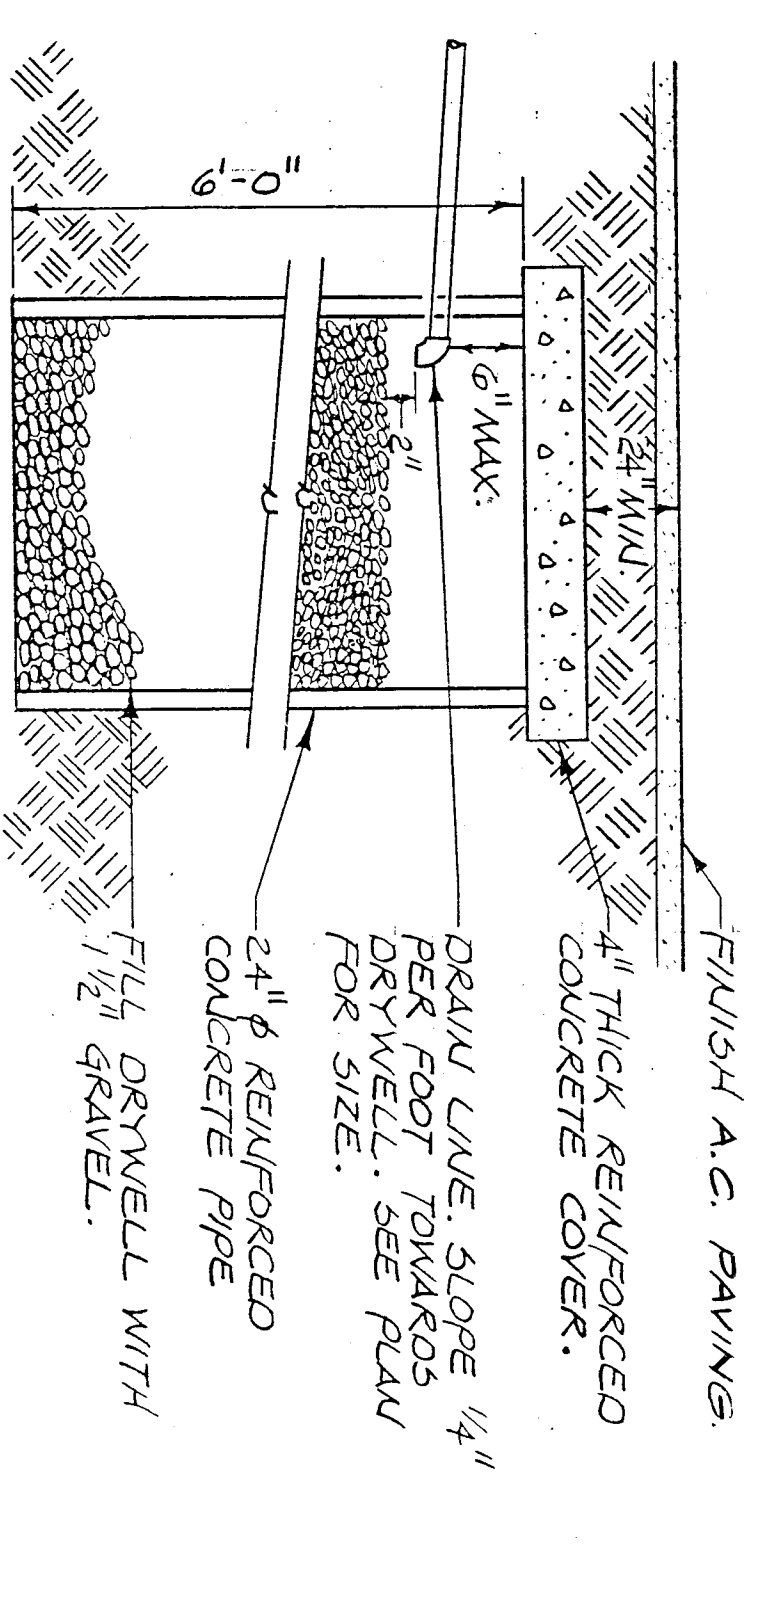 FINISH A.C. PAVING.
4" THICK REINFORCED
CONCRETE COVER.
DRAIN LINE. SLOPE 1/4"
PER FOOT TOWARDS
DRYWELL. SEE PLAN
FOR SIZE.
24" ⌀ REINFORCED
CONCRETE PIPE
FILL DRYWELL WITH
1 1/2" GRAVEL.
24" MIN.
6" MAX.
2"
6'-0"